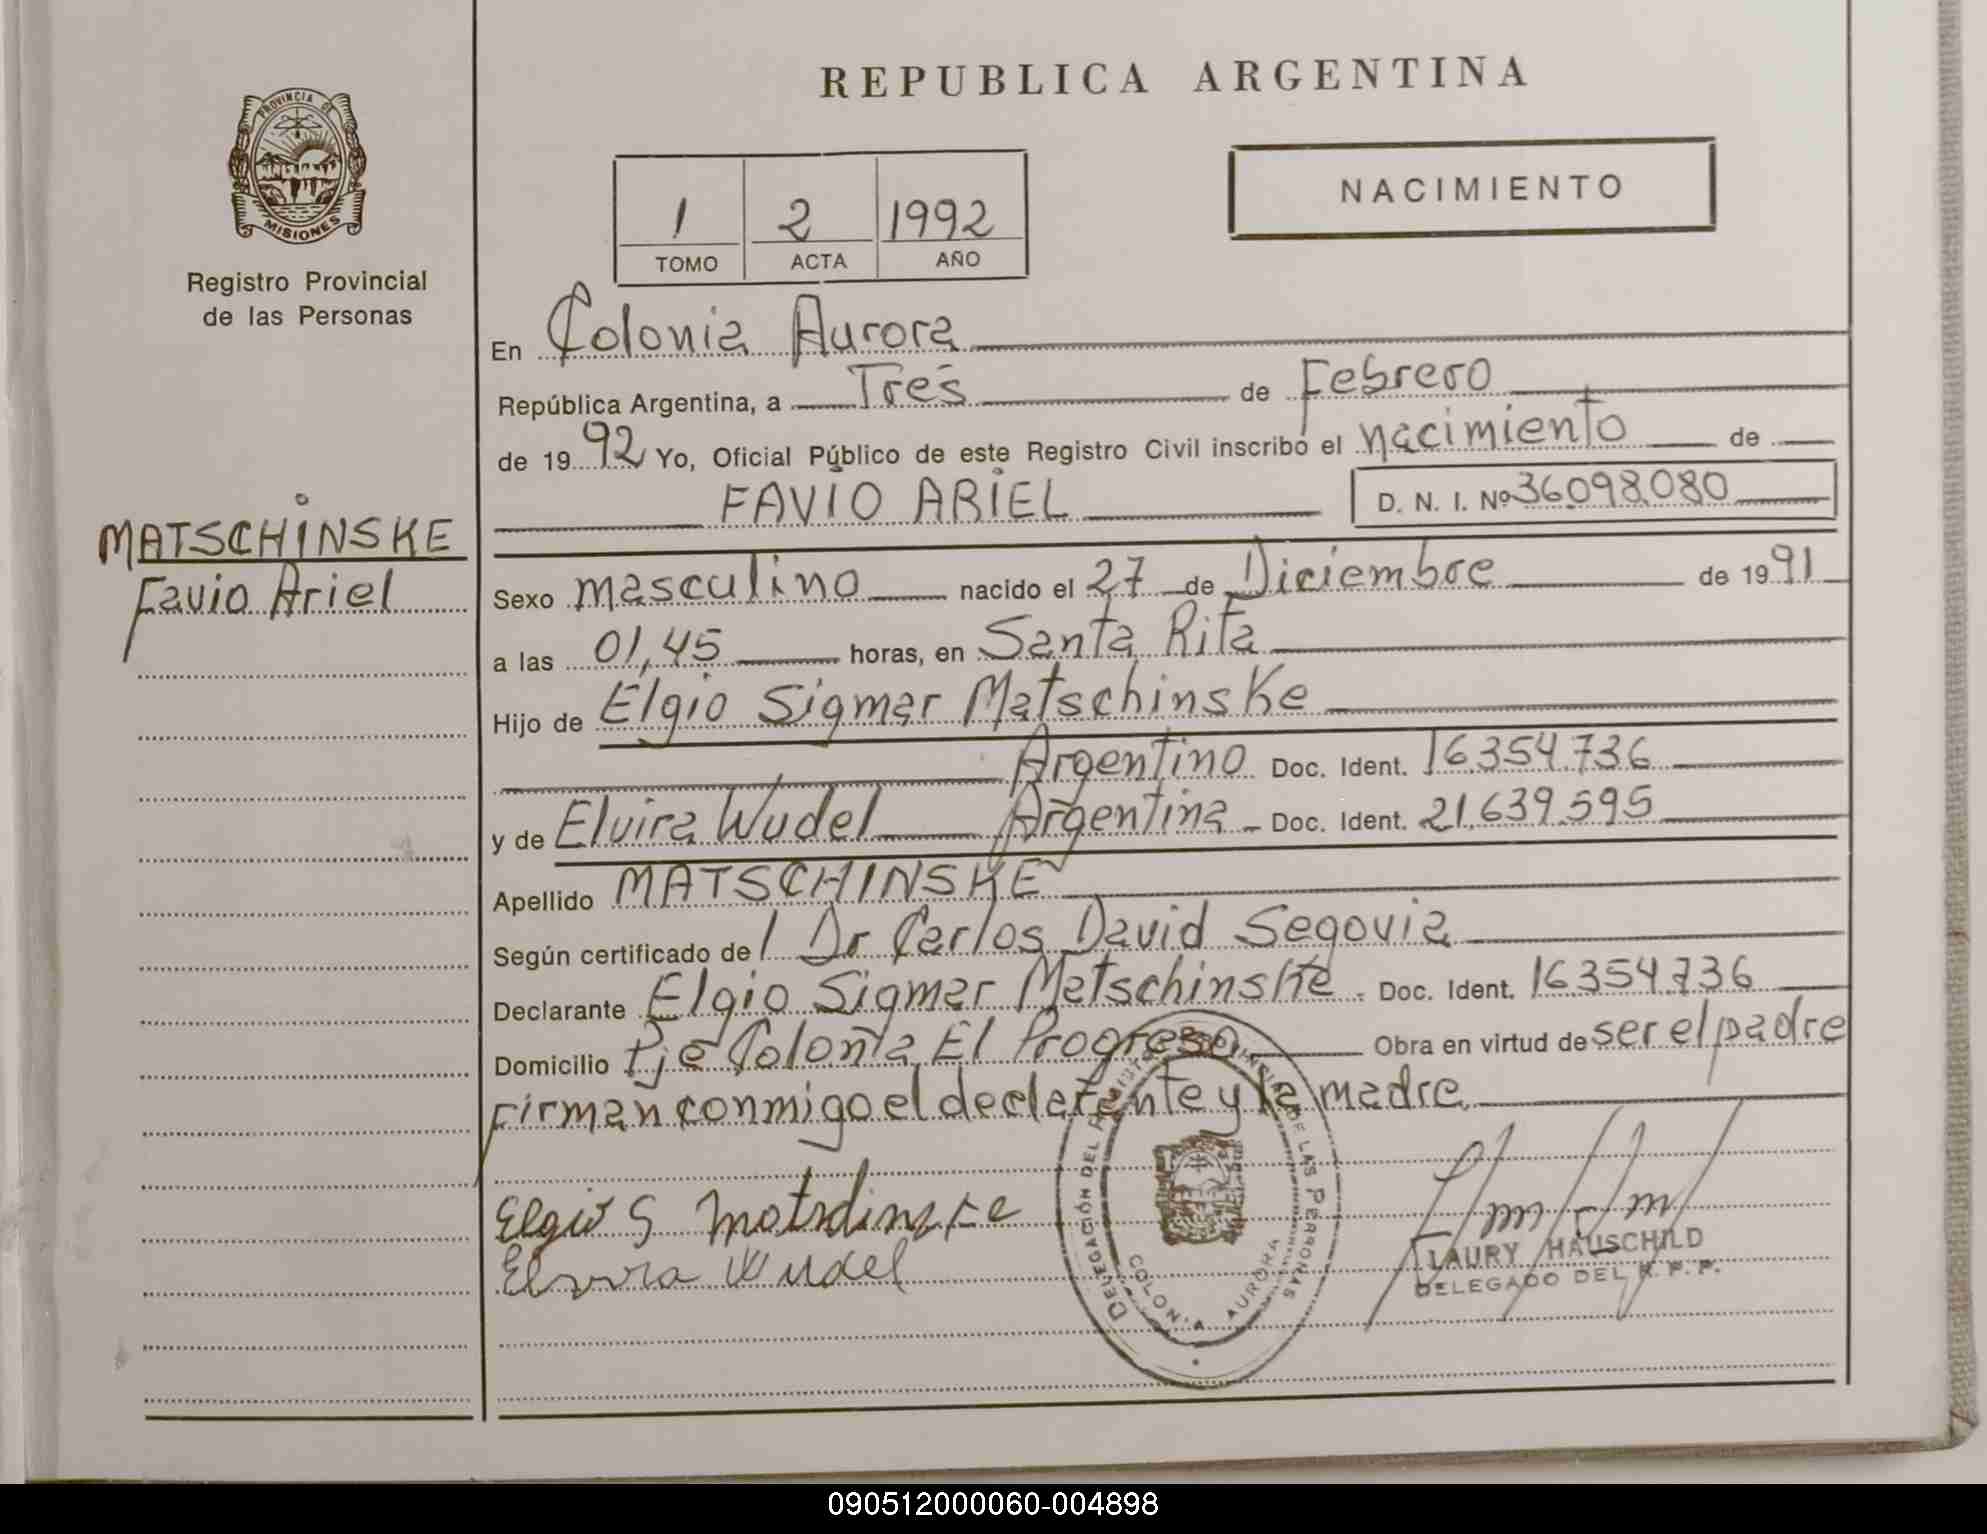 REPUBLICA ARGENTINA
PROVINCIA DE
MISIONES
Registro Provincial
de las Personas
NACIMIENTO
1 2 1992
TOMO ACTA AÑO
En Colonia Aurora
República Argentina, a Tres de Febrero
de 1992 Yo, Oficial Público de este Registro Civil inscribo el nacimiento de
FAVIO ARIEL D. N. I. Nº 36098080
MATSCHINSKE
Favio Ariel
Sexo masculino nacido el 27 de Diciembre de 1991
a las 01,45 horas, en Santa Rita
Hijo de Elgio Sigmar Matschinske
Argentino Doc. Ident. 16354736
y de Elvira Wudel Argentina Doc. Ident. 21.639.595
Apellido MATSCHINSKE
Según certificado del Dr Carlos David Segovia
Declarante Elgio Sigmar Matschinske Doc. Ident. 16354736
Domicilio Pje Colonia El Progreso Obra en virtud de ser el padre
Firman conmigo el declarante y la madre
Elgio S Matschinske
Elvira Wudel
DELEGACIÓN DEL REGISTRO PROVINCIAL DE LAS PERSONAS
COLONIA AURORA
LAURY HAUSCHILD
DELEGADO DEL R. P. P.
090512000060-004898